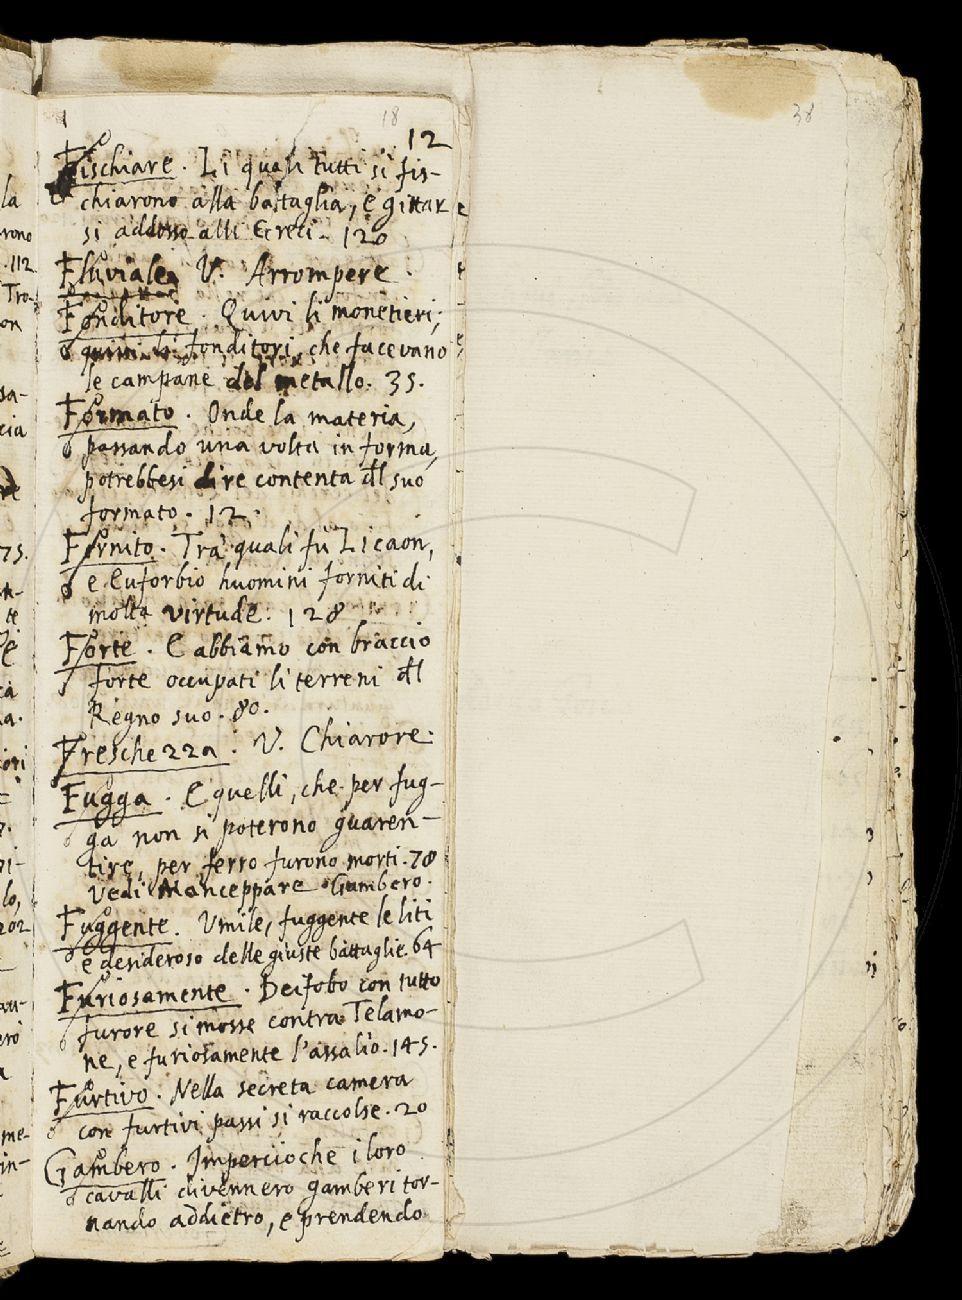 18
38
12
Fischiare. Li quali tutti si fis-
chiarono alla battaglia, e gittar
si addosso alli Greci. 120
Fluviale V. Arrompere.
Fonditore. Quivi li monetieri;
quivi li fonditori, che facevano
le campane del metallo. 35.
Formato. Onde la materia,
passando una volta in forma,
potrebbesi dire contenta dl suo
formato. 12.
Fornito. Tra quali fù Licaon,
e Euforbio huomini forniti di
molta virtude. 128
Forte. E abbiamo con braccio
forte occupati li terreni dl
Regno suo. 80.
Freschezza. V. Chiarore.
Fugga. E quelli, che per fug-
ga non si poterono guaren-
tire, per ferro furono morti. 78
Vedi Manceppare Gambero.
Fuggente. Umile, fuggente le liti
e desideroso delle giuste battaglie. 64
Furiosamente. Deifobo con tutto
furore si mosse contra Telamo-
ne, e furiosamente l'assalio. 145.
Furtivo. Nella secreta camera
con furtivi passi si raccolse. 20
Gambero. Impercioche i loro
cavalli divennero gamberi tor-
nando addietro, e prendendo